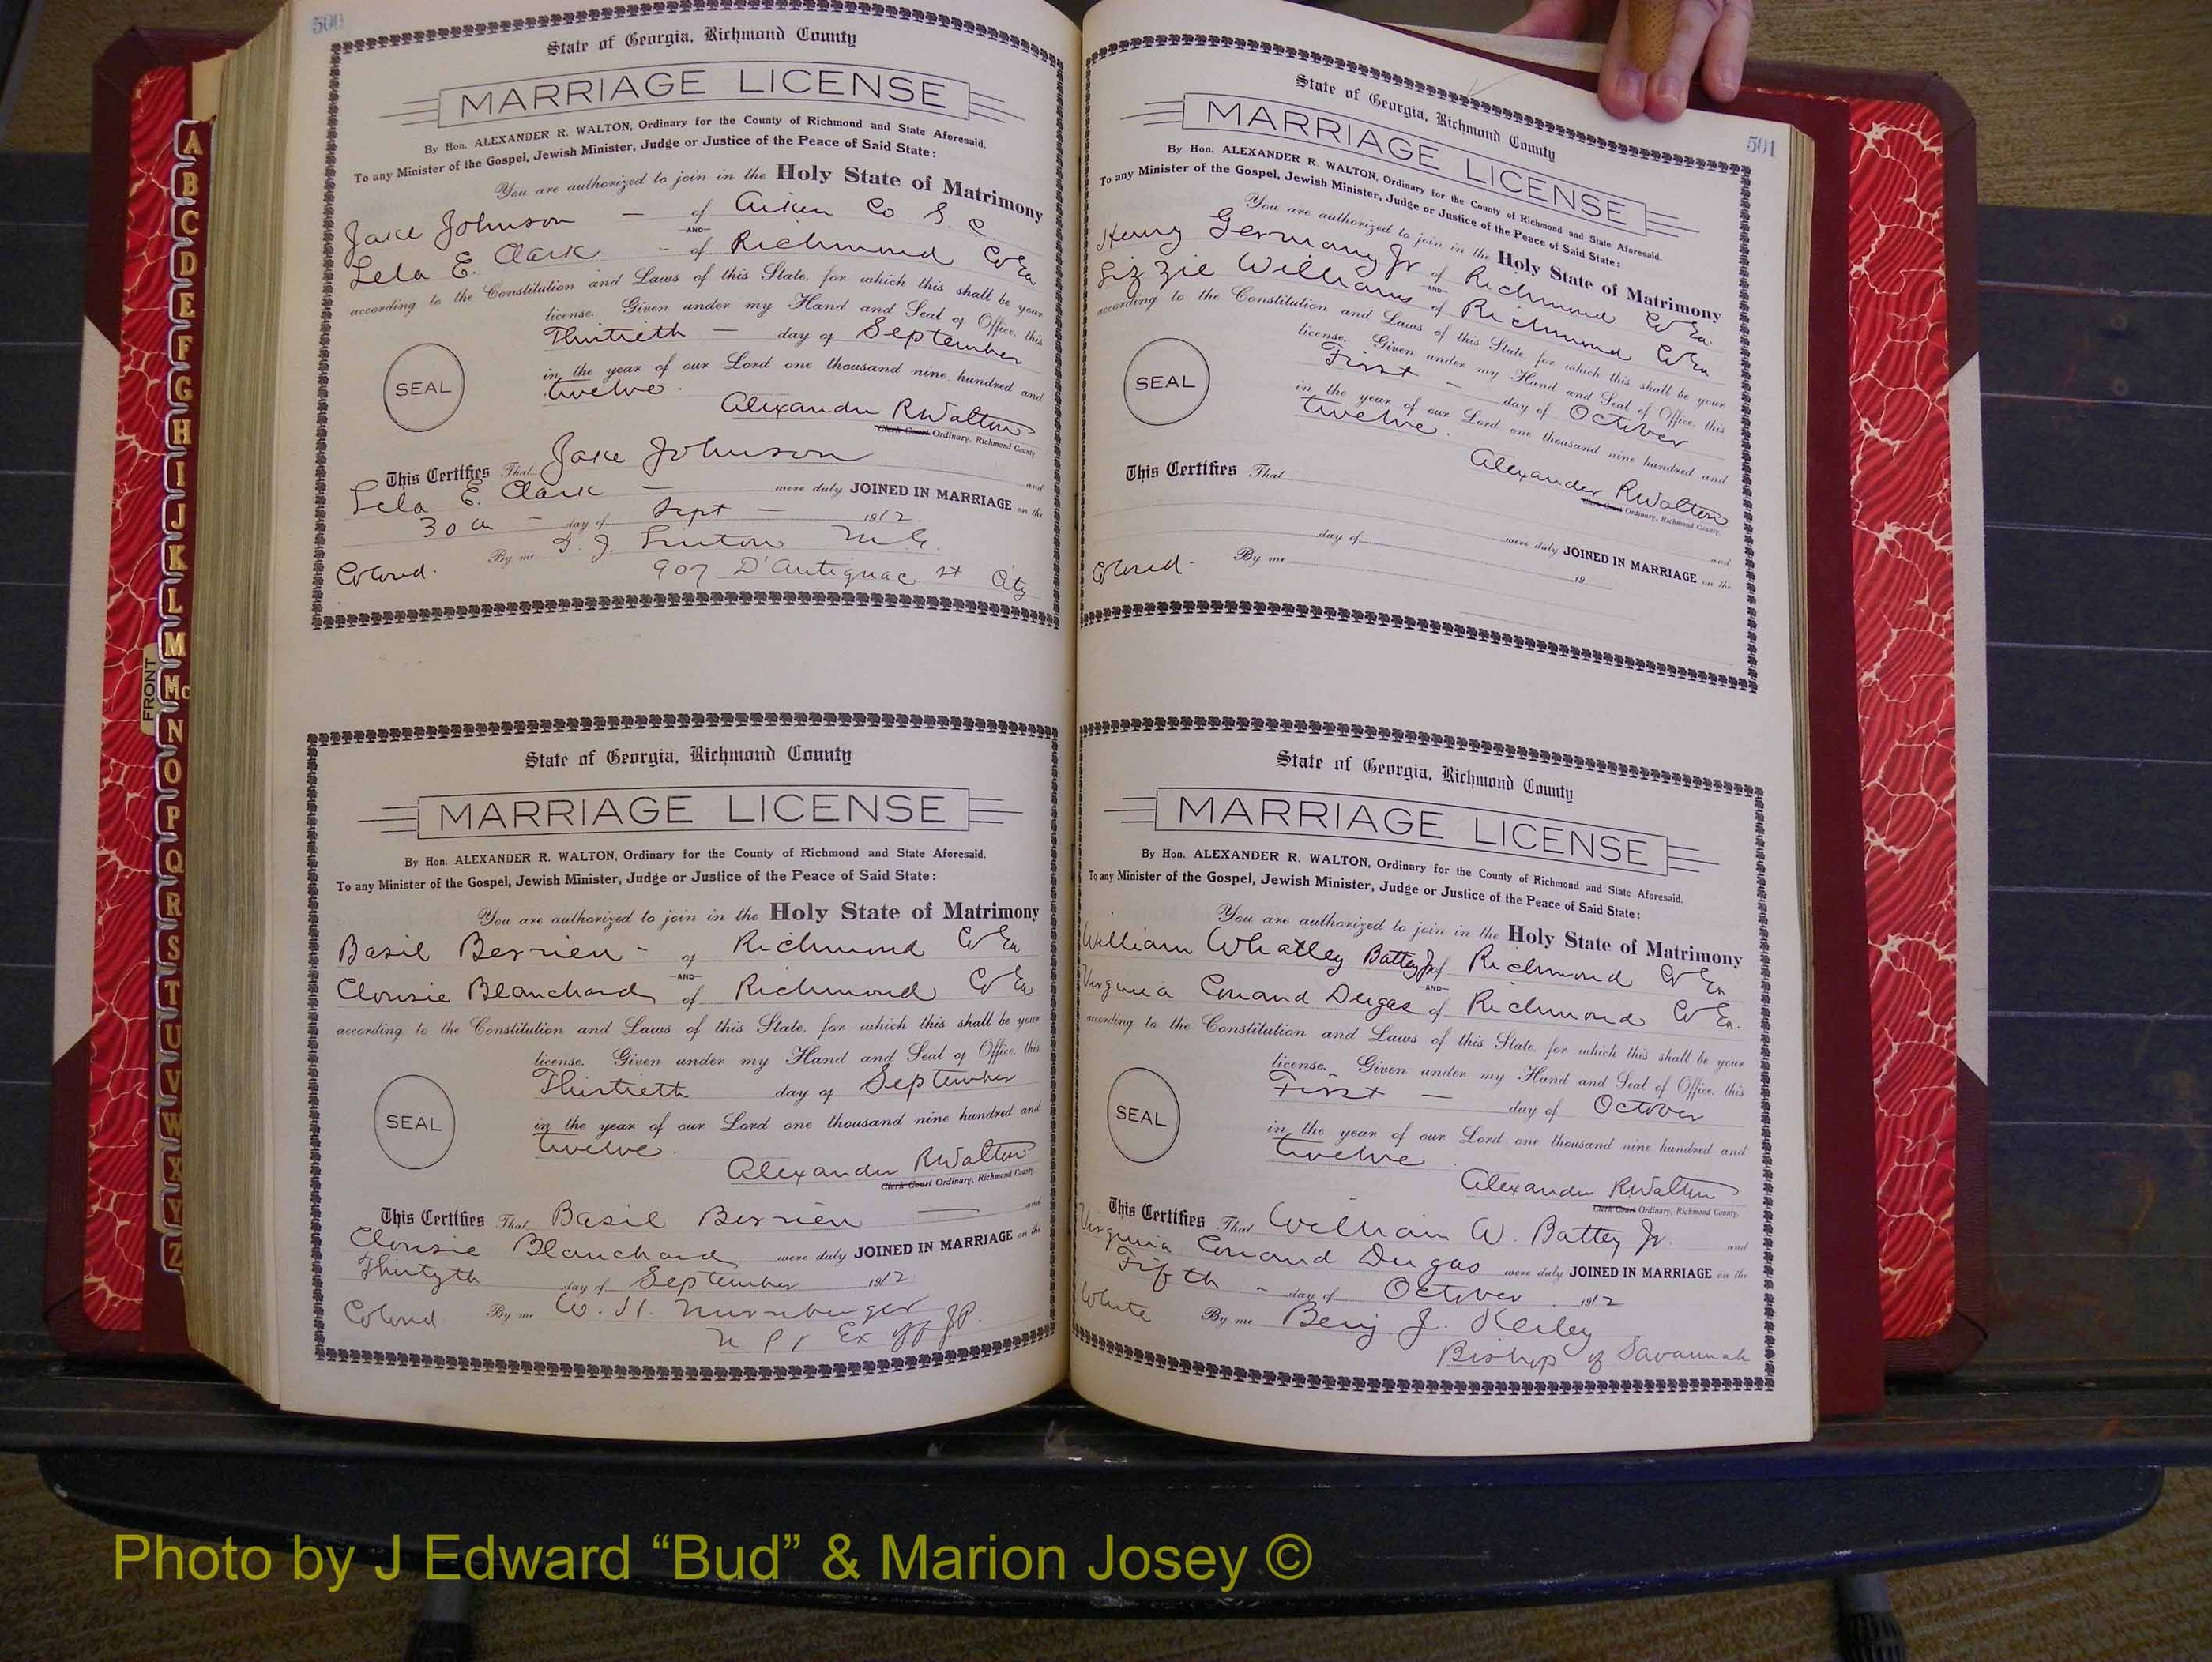 500
State of Georgia, Richmond County
MARRIAGE LICENSE
By Hon. ALEXANDER R. WALTON, Ordinary for the County of Richmond and State Aforesaid.
To any Minister of the Gospel, Jewish Minister, Judge or Justice of the Peace of Said State:
You are authorized to join in the Holy State of Matrimony
Jake Johnson — of Aiken Co S. C.
AND
Lela E. Clark - of Richmond Co Ga
according to the Constitution and Laws of this State, for which this shall be your
license. Given under my Hand and Seal of Office, this
Thirtieth — day of September
in the year of our Lord one thousand nine hundred and
twelve.
SEAL
Alexander R Walton
Clerk Court Ordinary, Richmond County.
This Certifies That Jake Johnson and
Lela E. Clark — were duly JOINED IN MARRIAGE on the
30th — day of Sept — 1912
By me J. Linton M.G.
Colored. 907 D'Antignac st City
State of Georgia, Richmond County
MARRIAGE LICENSE
By Hon. ALEXANDER R. WALTON, Ordinary for the County of Richmond and State Aforesaid.
To any Minister of the Gospel, Jewish Minister, Judge or Justice of the Peace of Said State:
You are authorized to join in the Holy State of Matrimony
Basil Berrien - of Richmond Co Ga
AND
Clousie Blanchard of Richmond Co Ga
according to the Constitution and Laws of this State, for which this shall be your
license. Given under my Hand and Seal of Office, this
Thirtieth day of September
in the year of our Lord one thousand nine hundred and
twelve.
SEAL
Alexander R Walton
Clerk Court Ordinary, Richmond County.
This Certifies That Basil Berrien — and
Clousie Blanchard were duly JOINED IN MARRIAGE on the
Thirtyth day of September 1912
Colored By me W. H. Nurnberger
N P & Ex off JP.
501
State of Georgia, Richmond County
MARRIAGE LICENSE
By Hon. ALEXANDER R. WALTON, Ordinary for the County of Richmond and State Aforesaid.
To any Minister of the Gospel, Jewish Minister, Judge or Justice of the Peace of Said State:
You are authorized to join in the Holy State of Matrimony
Henry Germany Jr of Richmond Co Ga.
AND
Lizzie Williams of Richmond Co Ga
according to the Constitution and Laws of this State, for which this shall be your
license. Given under my Hand and Seal of Office, this
First — day of October
in the year of our Lord one thousand nine hundred and
twelve.
SEAL
Alexander R Walton
Clerk Court Ordinary, Richmond County.
This Certifies That and
were duly JOINED IN MARRIAGE on the
day of 19
Colored. By me
State of Georgia, Richmond County
MARRIAGE LICENSE
By Hon. ALEXANDER R. WALTON, Ordinary for the County of Richmond and State Aforesaid.
To any Minister of the Gospel, Jewish Minister, Judge or Justice of the Peace of Said State:
You are authorized to join in the Holy State of Matrimony
William Whatley Battey Jr of Richmond Co Ga
AND
Virginia Conand Dugas of Richmond Co Ga.
according to the Constitution and Laws of this State, for which this shall be your
license. Given under my Hand and Seal of Office, this
First — day of October
in the year of our Lord one thousand nine hundred and
twelve
SEAL
Alexander R Walton
Clerk Court Ordinary, Richmond County.
This Certifies That William W. Battey Jr. and
Virginia Conand Dugas were duly JOINED IN MARRIAGE on the
Fifth - day of October 1912
White By me Benj J. Keiley
Bishop of Savannah
FRONT
A
B
C
D
E
F
G
H
I
J
K
L
M
Mc
N
O
P
Q
R
S
T
U
V
W
X
Y
Z
Photo by J Edward “Bud” & Marion Josey ©